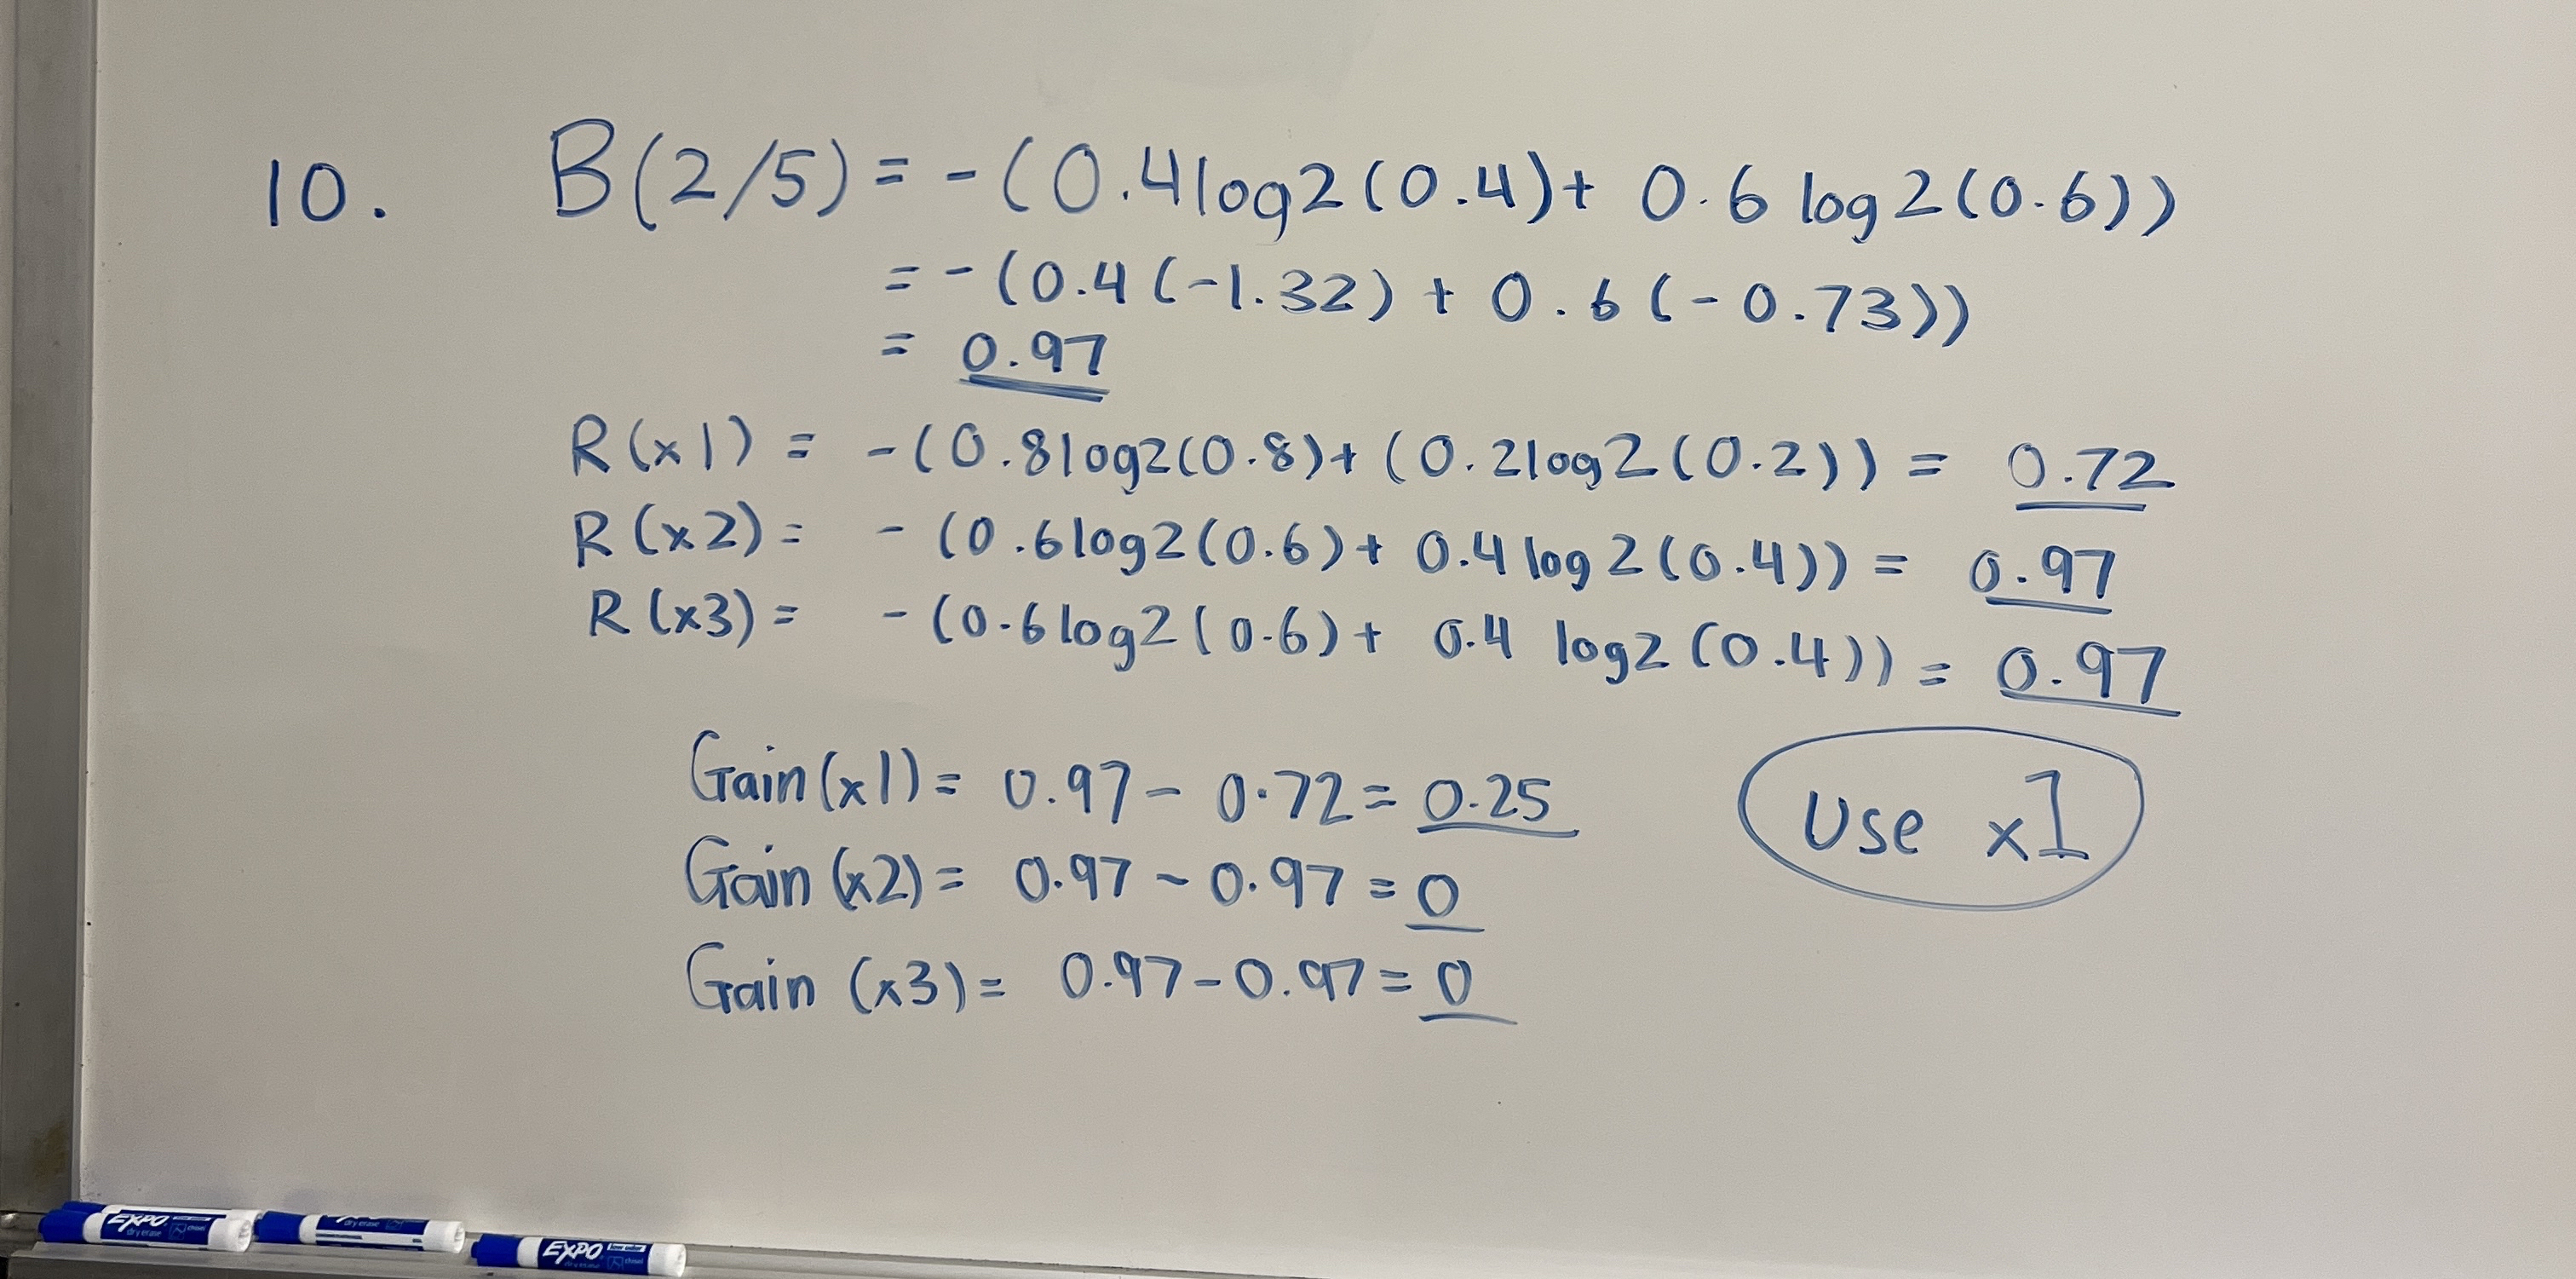 10. B(2/5) = -(0.4log2(0.4)+ 0.6 log2(0.6))
= -(0.4(-1.32) + 0.6(-0.73))
= 0.97
R(x1) = -(0.8log2(0.8)+(0.2log2(0.2)) = 0.72
R(x2) = -(0.6log2(0.6)+ 0.4log2(0.4)) = 0.97
R(x3) = -(0.6log2(0.6)+ 0.4 log2(0.4)) = 0.97
Gain(x1) = 0.97 - 0.72 = 0.25
Use x1
Gain(x2) = 0.97 - 0.97 = 0
Gain (x3) = 0.97 - 0.97 = 0
EXPO
dry erase
EXPO
dry erase
EXPO
dry erase